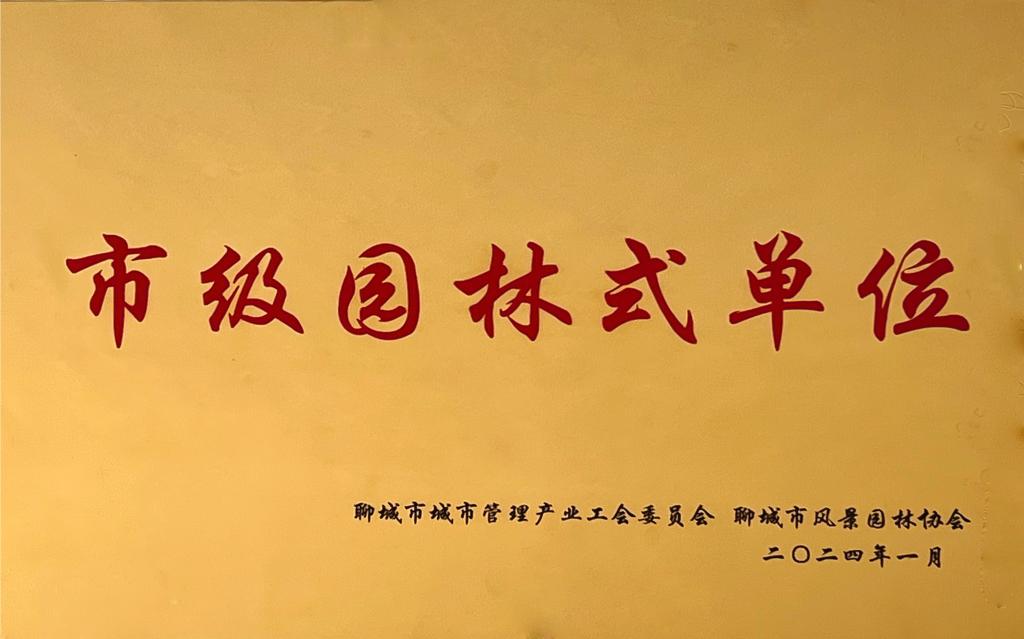 市级园林式单位
聊城市城市管理产业工会委员会 聊城市风景园林协会
二〇二四年一月